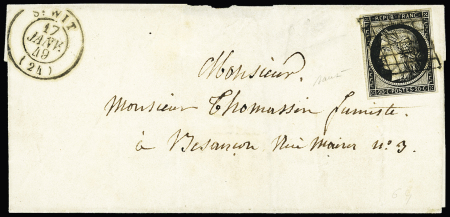 ST WIT
17
JANV.
49
(24)
REPUB. FRANC.
20 POSTES 20
Monsieur
Monsieur Thomassin fumiste
à Besançon Rue Mairet n° 3.